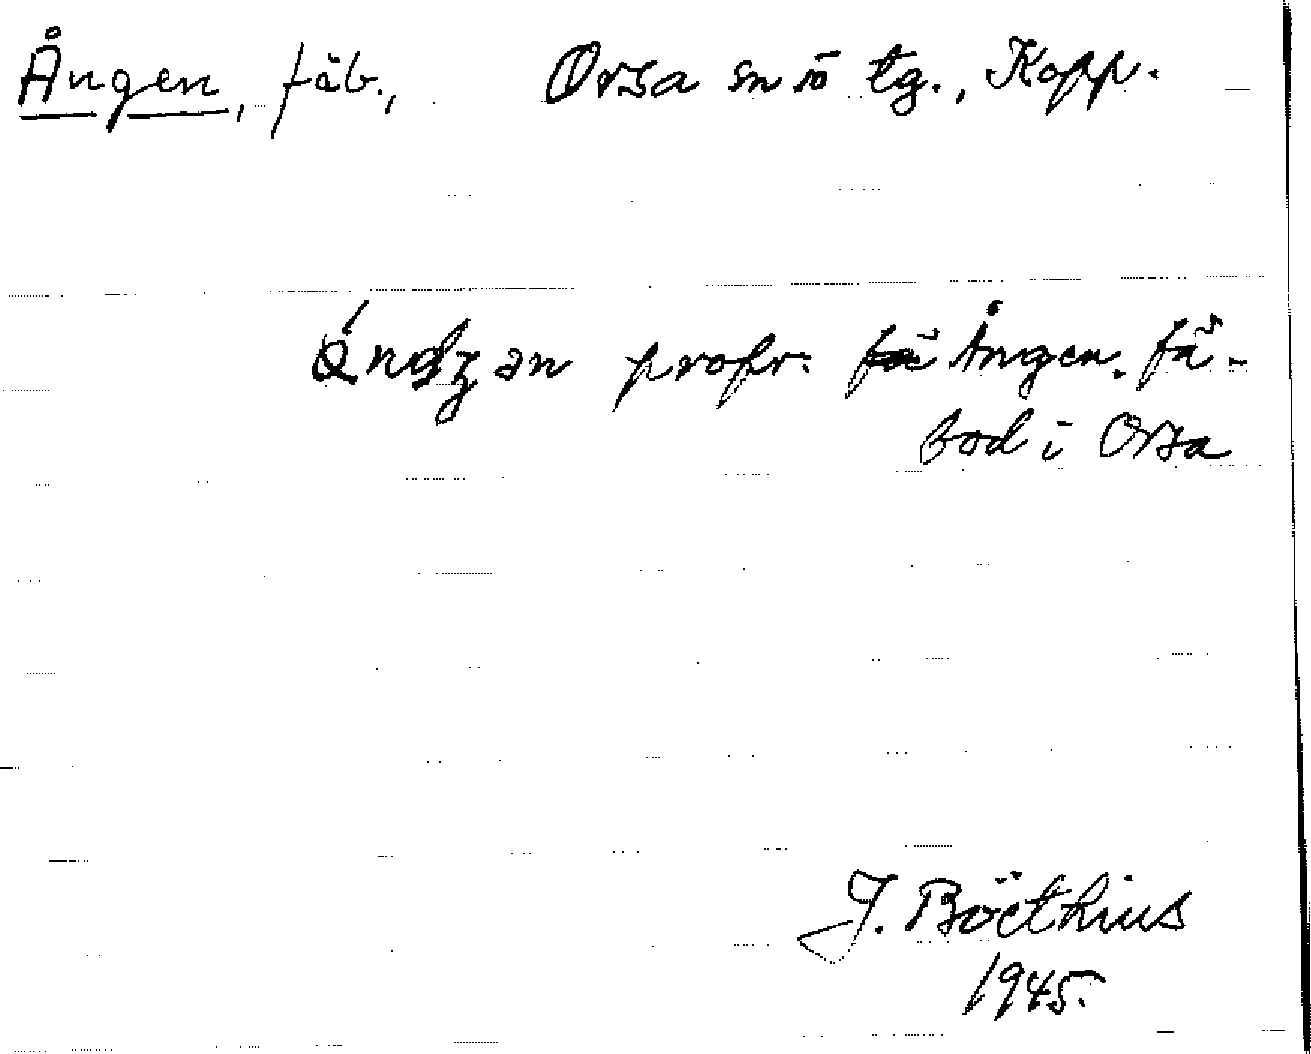 Ången, fäb., Orsa sn o tg., Kopp.
propr. Ången. fä-
bod i Orsa
J. Boëthius
1945.